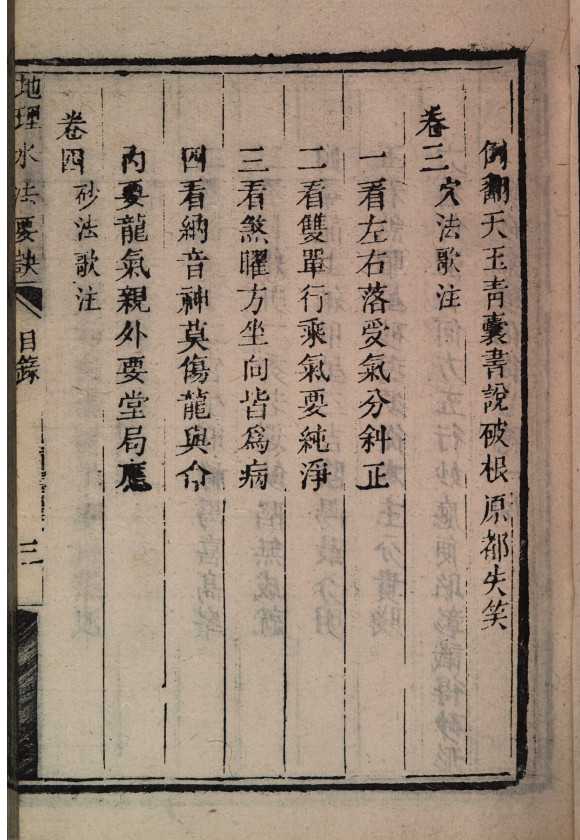 倒翻天玉青囊書說破根原都失笑
卷三
穴法歌注
一看左右落受氣分斜正
二看雙單行乘氣要純淨
三看煞曜方坐向皆為病
四看納音神莫傷龍與分
內要龍氣親外要堂局應
卷四
砂法歌注
地理水法要訣
目錄
三